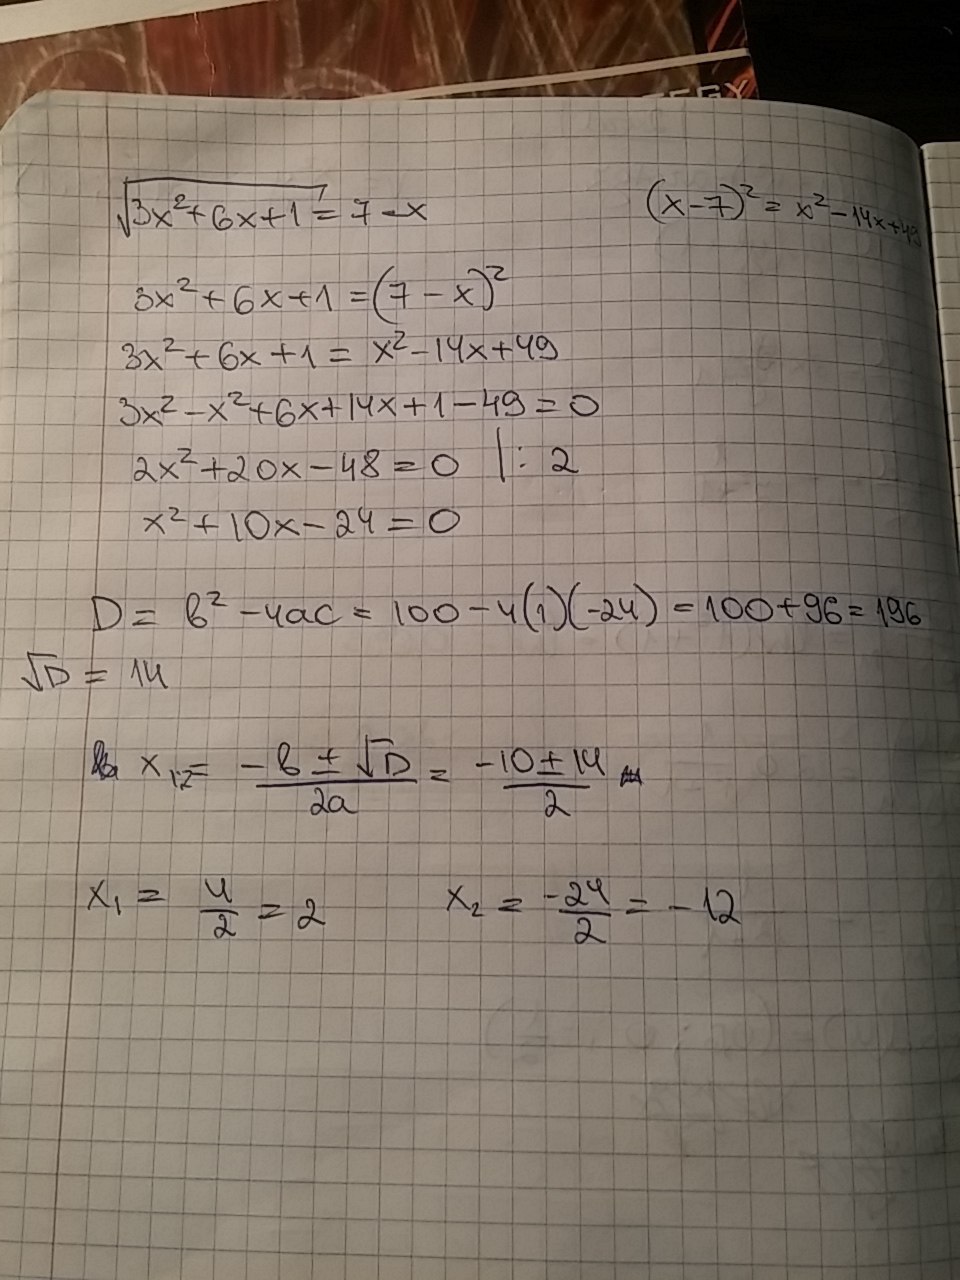 ERGY
√3x²+6x+1 = 7-x
(x-7)² = x²-14x+49
3x²+6x+1 = (7-x)²
3x²+6x+1 = x²-14x+49
3x²-x²+6x+14x+1-49=0
2x²+20x-48=0 |: 2
x²+10x-24=0
D = b²-4ac = 100-4(1)(-24) = 100+96=196
√D = 14
x₁₂= -b±√D/2a = -10±14/2
x₁ = 4/2 = 2
x₂ = -24/2 = -12